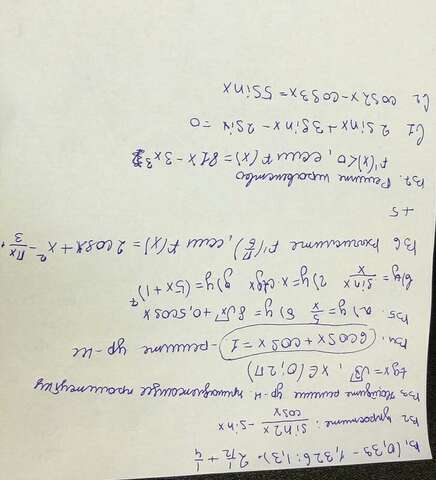 B1 (0,39 - 1,326 : 1,3) · 2 1/12 + 1/4
B2 упростите: sin2x/cosx - sinx
B3. Найдите решение ур-я. принадлежащее промежутку
tgx = √3, x∈(0; 2π)
B4. 6cosx + cosx = 1 - решите ур-ие
B5. а) y = 5/x б) y = 8√x + 0,5cosx
в) y = sinx/x г) y = x·ctgx д) y = (5x+1)⁷
B6 Вычислите f'(π/6), если f(x) = 2cosx + x² - πx/3 +
+5
B7. Решите неравенство
f'(x)<0, если f(x) = 81x - 3x³
C1 2sinx + 3sinx - 2sin = 0
C2 cos2x - cos3x = 5sinx